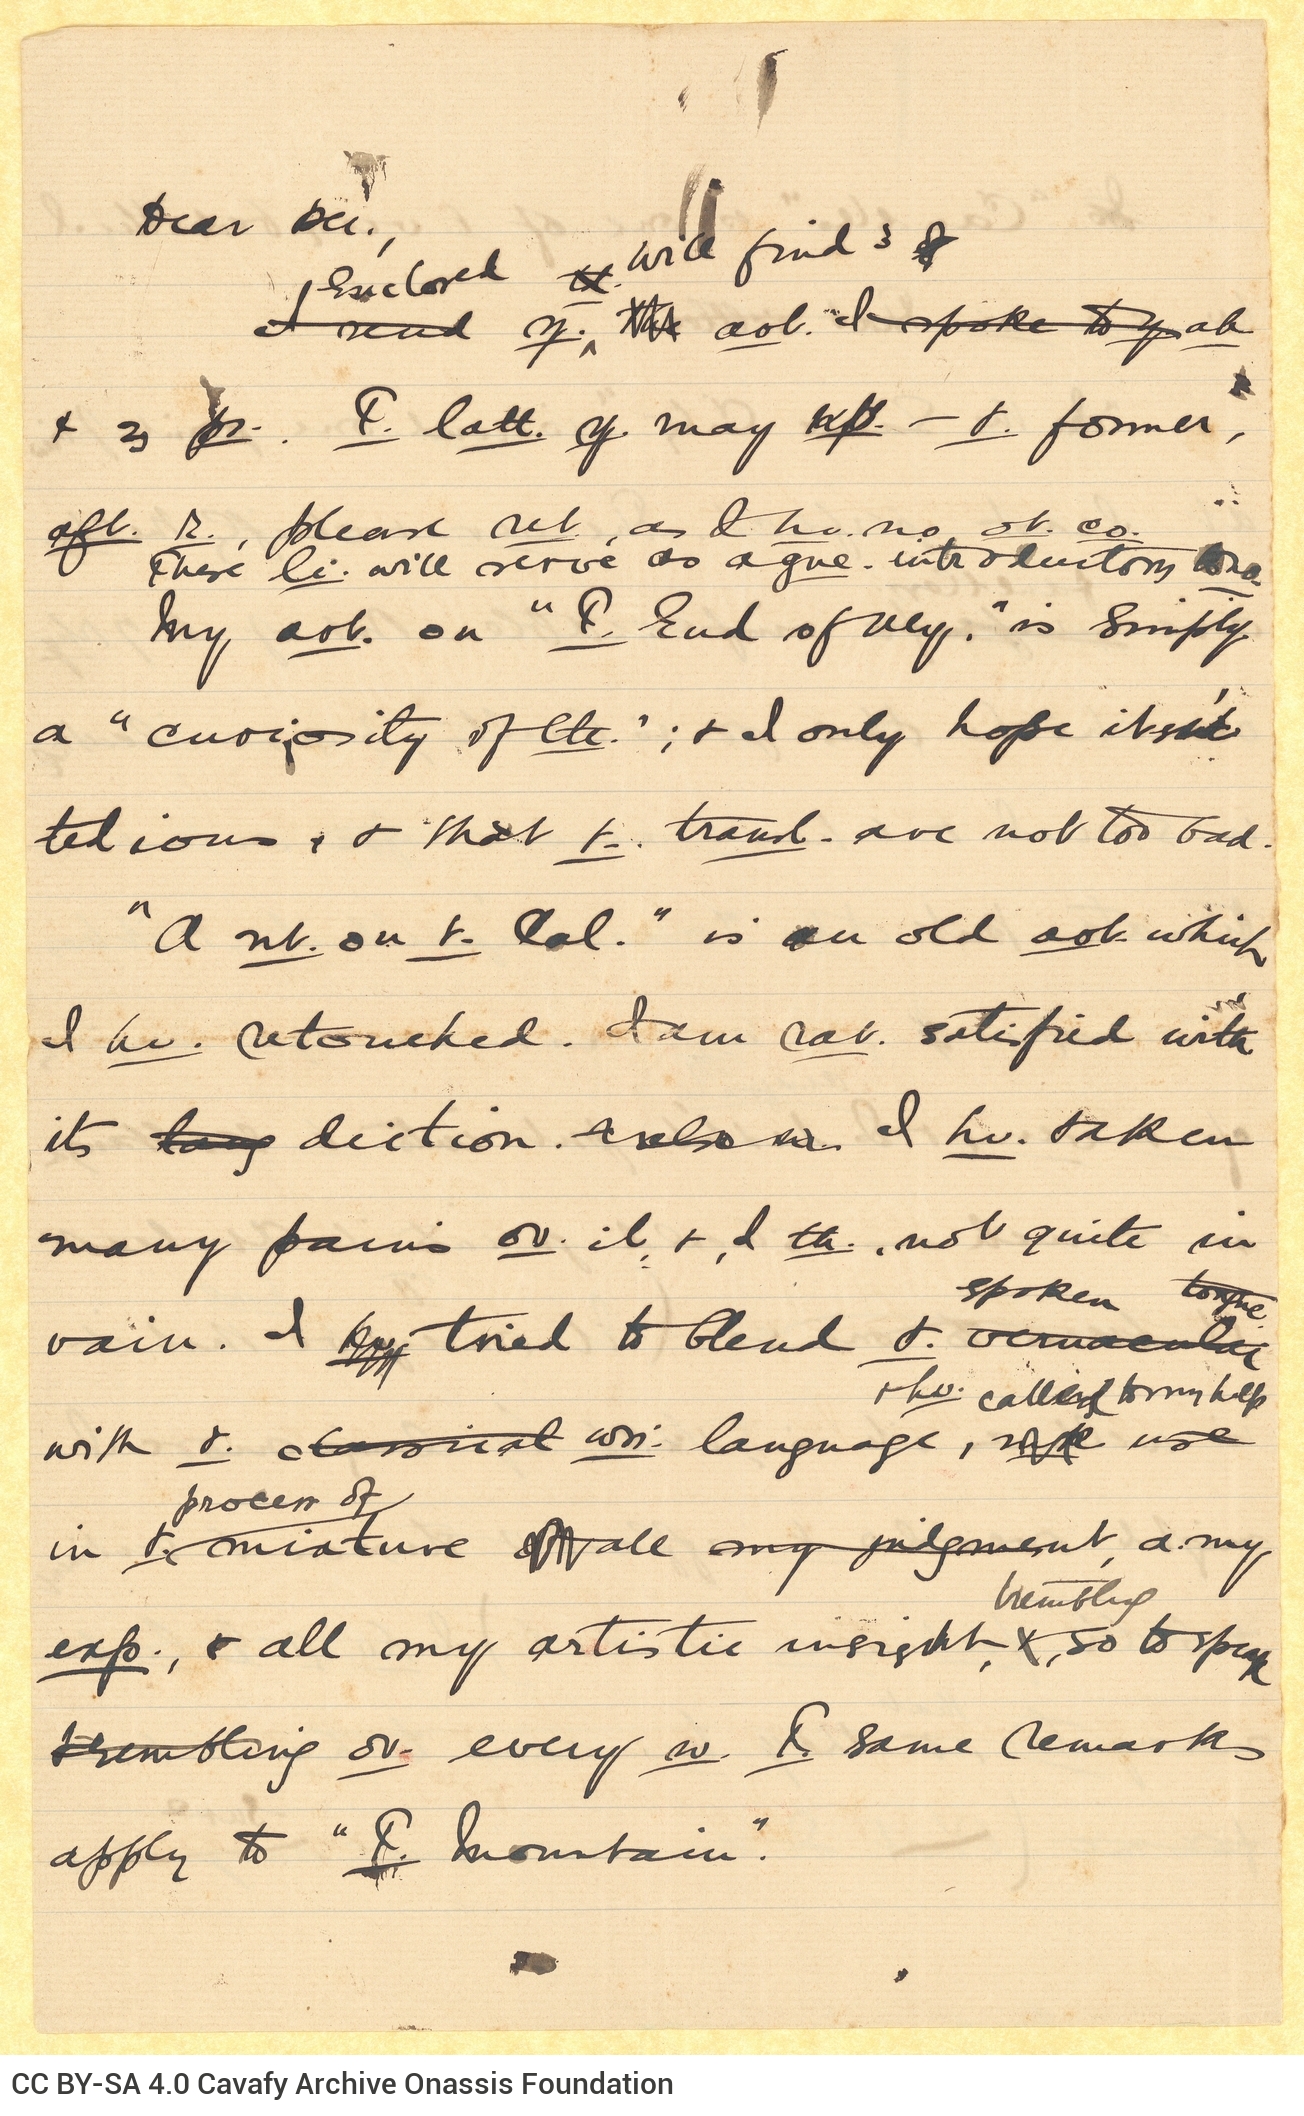 Dear
Enclosed will find 3
I send y. aot. I spoke to y ab
& 3 pr. T. latt. y. may kp. – t. former,
aft. R., please ret., as I hv. no ot. co.
These li. will serve as a gne. introductory no.
My aot. on "T. End of Uly." is simply
a "curiosity of lte."; & I only hope it isn't
tedious, & that t. transl. are not too bad.
"A nt. on t. Col." is an old aot. which
I hv. retouched. I am rat. satisfied with
its lang diction. I hv. taken
many pains ov. it, &, I th., not quite in
spoken tongue
vain. I tried to blend t. vernacular
& hv. called to my help
with t. classical wri. language, use
process of
in t. mixture all my judgment, a. my
trembling
exp., & all my artistic insight, &, so to speak
trembling ov. every w. T. same remarks
apply to "T. Mountain".
CC BY-SA 4.0 Cavafy Archive Onassis Foundation